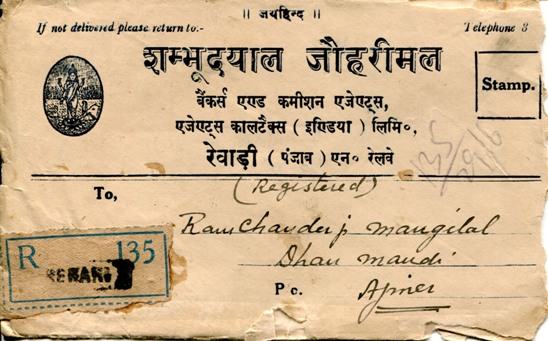 ॥ जयहिन्द ॥
If not delivered please return to:-
Telephone 8
शम्भूदयाल जौहरीमल
बैंकर्स एण्ड कमीशन एजेण्ट्स,
एजेण्ट्स कालटैक्स (इण्डिया) लिमि०,
रेवाड़ी (पंजाब) एन० रेलवे
Stamp.
(Registered)
To,
Ram Chanderji Mangilal
Dhan mandi
P c.
Ajmer
R 135
REWARI